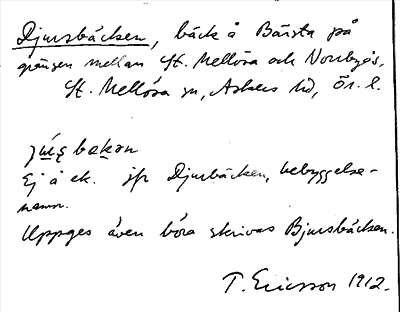 Djursbäcken, bäck å Bärsta på
gränsen mellan St. Mellösa och Norrbyås,
St. Mellösa sn, Askers hd, Ör. l.
bekən
Ej å ek. jfr Djursbäcken, bebyggelse-
namn.
Uppges även böra skrivas Bjursbäcken.
T. Ericsson 1912.